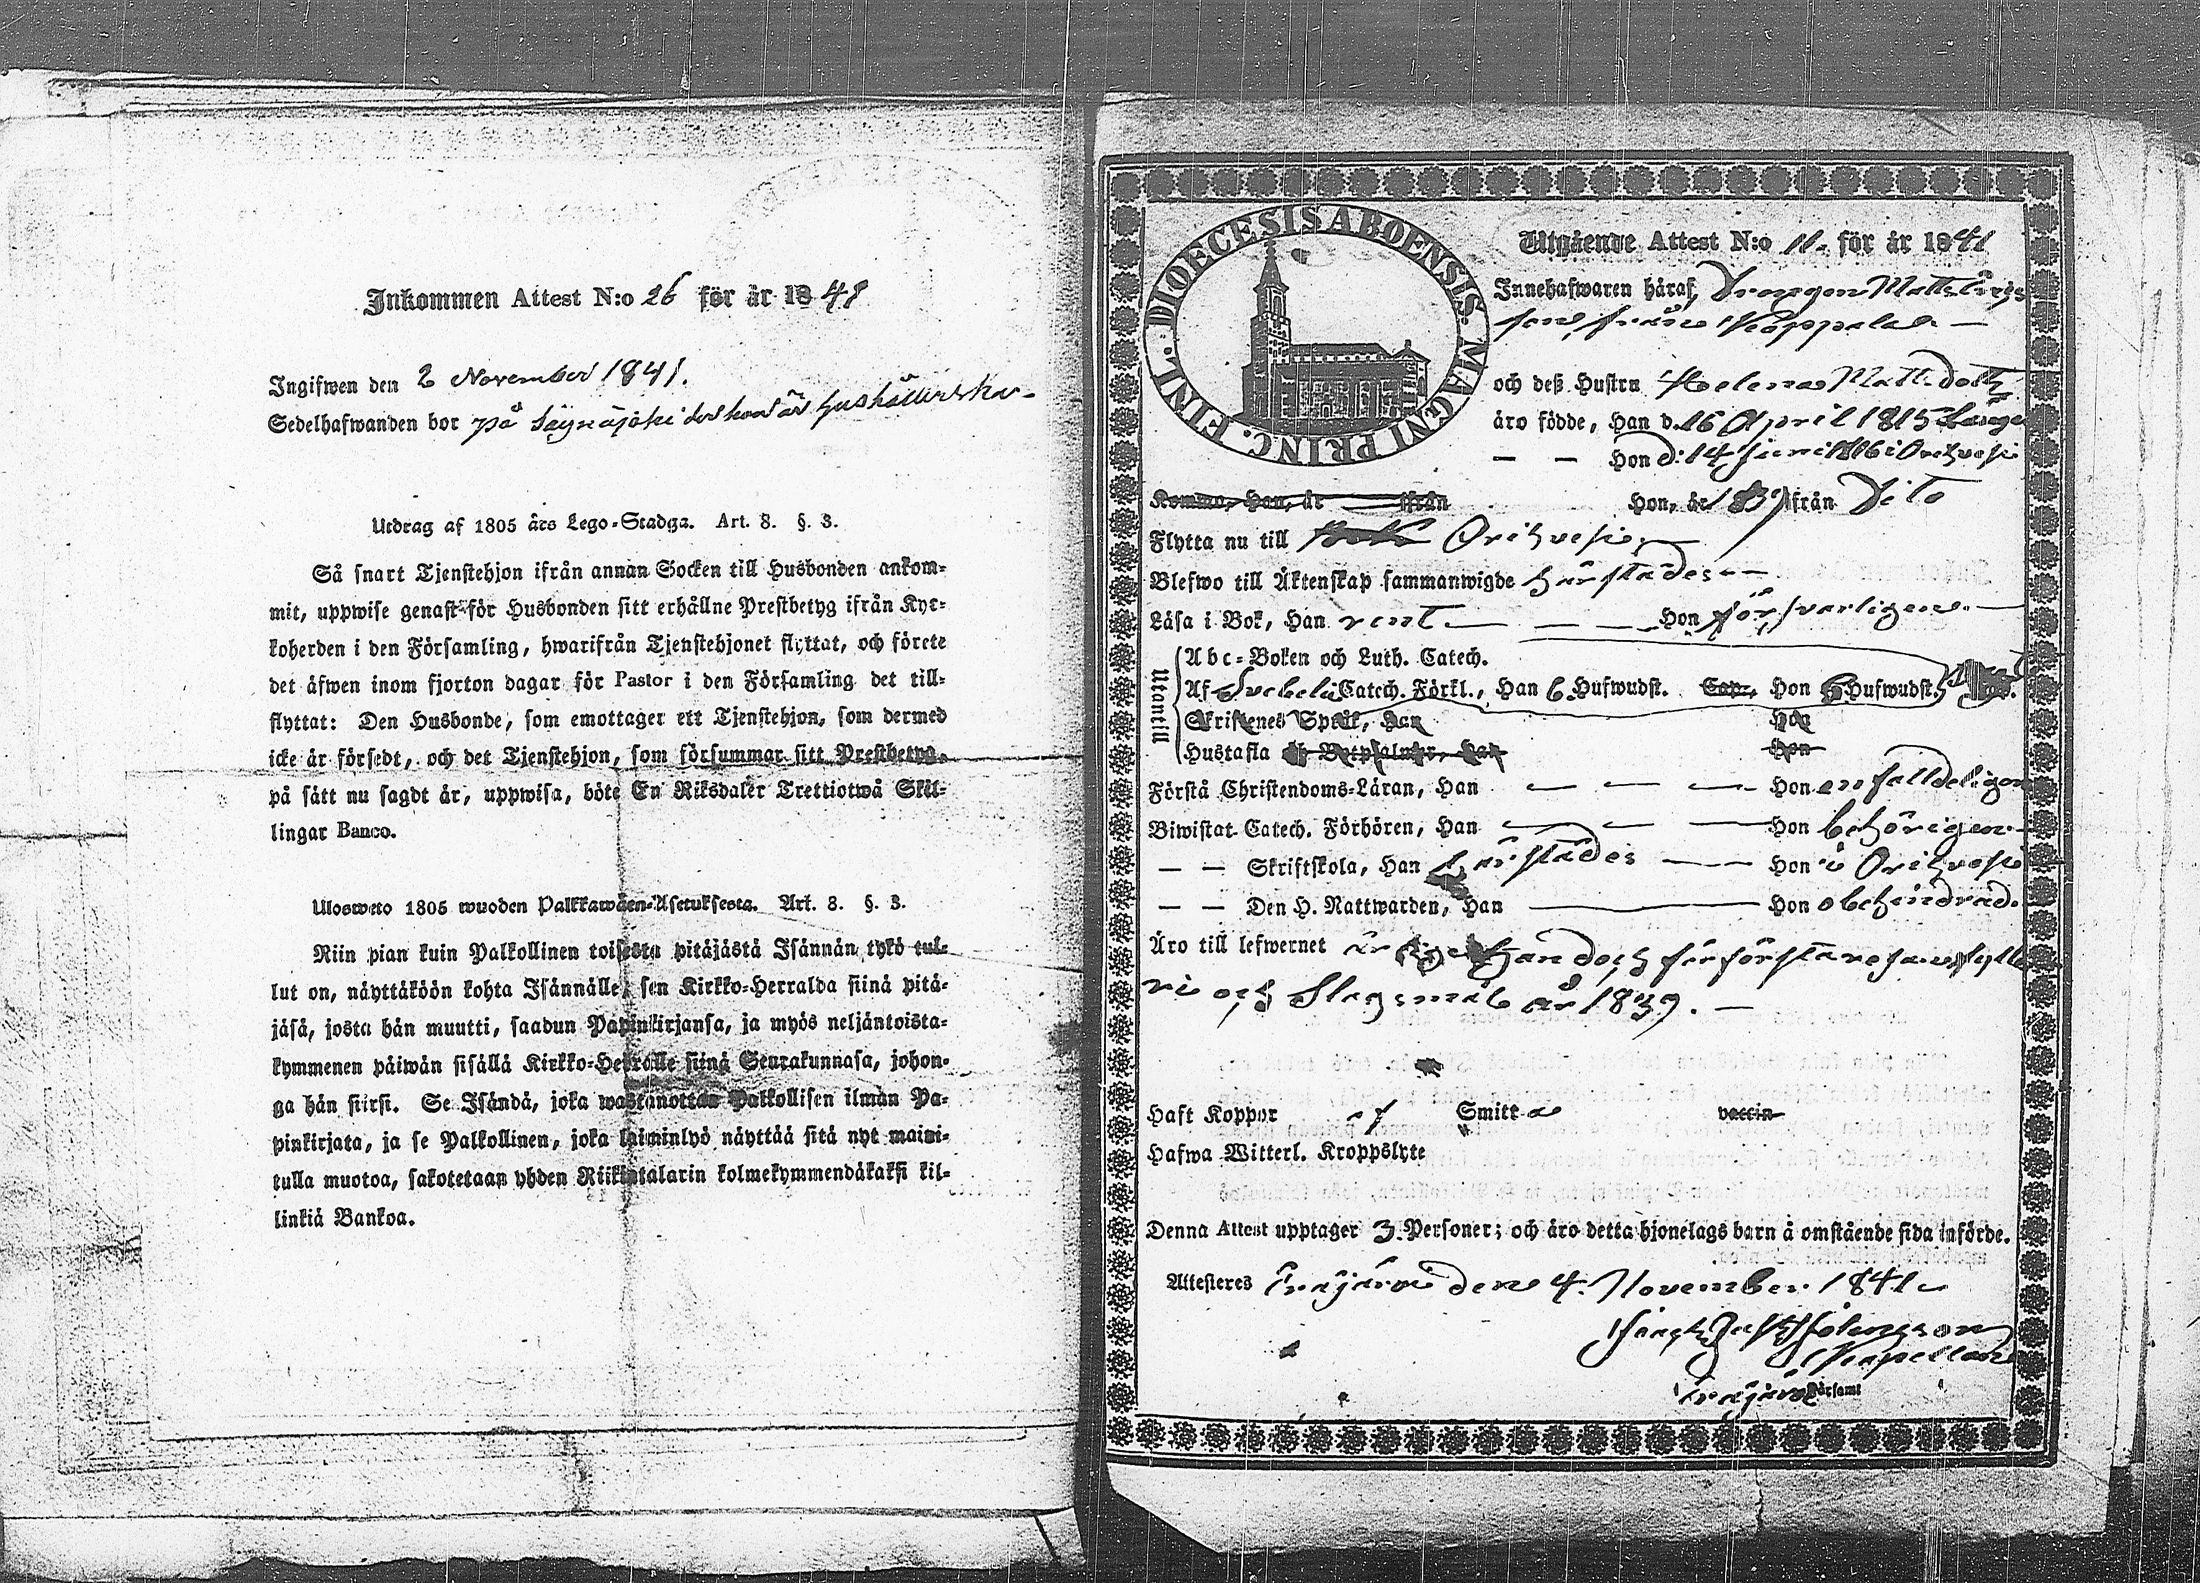 Inkommen Attest N:o 26 för år 1841
Ingifwen den 2 November 1841.
Sedelhafwanden bor på Säynäjoki der hon är hushållerska
Utdrag af 1805 års Lego-Stadga. Art. 8. §. 3.
Så snart Tjenstehjon ifrån annan Socken till Husbonden ankom-
mit, uppwise genast för Husbonden sitt erhållne Prestbetyg ifrån Kyr-
koherden i den Församling, hwarifrån Tjenstehjonet flyttat, och förete
det äfwen inom fjorton dagar för Pastor i den Församling det till-
flyttat: Den Husbonde, som emottager ett Tjenstehjon, som dermed
icke är försedt, och det Tjenstehjon, som försummar sitt Prestbetyg,
på sätt nu sagdt är, uppwisa, böte En Riksdaler Trettiotwå Skil-
lingar Banco.
Ulosweto 1805 wuoden Palkkawäen-Asetuksesta. Art. 8. §. 3.
Niin pian kuin Palkollinen toisesta pitäjästä Isännän tykö tul-
lut on, näyttäköön kohta Isännälle, sen Kirkko-Herralda siinä pitä-
jäsä, josta hän muutti, saadun Papinkirjansa, ja myös neljäntoista-
kymmenen päiwän sisällä Kirkko-Herralle siinä Seurakunnasa, johon-
ga hän siirsi. Se Isändä, joka wastanottaa Palkollisen ilman Pa-
pinkirjata, ja se Palkollinen, joka laiminlyö näyttää sitä nyt maini-
tulla muotoa, sakotetaan yhden Riikintalarin kolmekymmendäkaksi kil-
linkiä Bankoa.
DIOECESIS ABOENSIS. MAGNI PRINC. FINL.
Utgående Attest N:o 11. för år 1841
Innehafwaren häraf, Drengen Matts
son från Kåppala
och deß Hustru Helena Matts dotter
äro födde, Han d. 16 April 1815
— — Hon d. 14 Juni 1816 i Orihvesi
Komma, Han, år ifrån Hon, år 1837 ifrån Dito
Flytta nu till Orihvesi.
Blefwo till Äktenskap sammanwigde härstädes
Läsa i Bok, Han rent Hon försvarligen
Utantill
Abc-Boken och Luth. Catech.
Af Svebelii Catech. Förkl., Han 6 Hufwudst. Cap., Hon 6 Hufwudst.
Skriftenes Språk, Han Hon
Hustafla och Botpsalmer, Han Hon
Förstå Christendoms-Läran, Han — — — Hon enfalldeligen
Biwistat Catech. Förhören, Han — — — Hon behörigen
— — Skriftskola, Han härstädes — — Hon i Orihvesi
— — Den H. Nattwarden, Han — Hon obehindrad.
Äro till lefwernet är Han doch för fylle
ri och Slagsmål år 1839.
Haft Koppor Smitt vaccin
Hafwa Witterl. Kroppslyte
Denna Attest upptager 3 Personer; och äro detta hjonelags barn å omstående sida införde.
Attesteres Eräjärvi den 4. November 1841
Capellan
Eräjärvi Församl